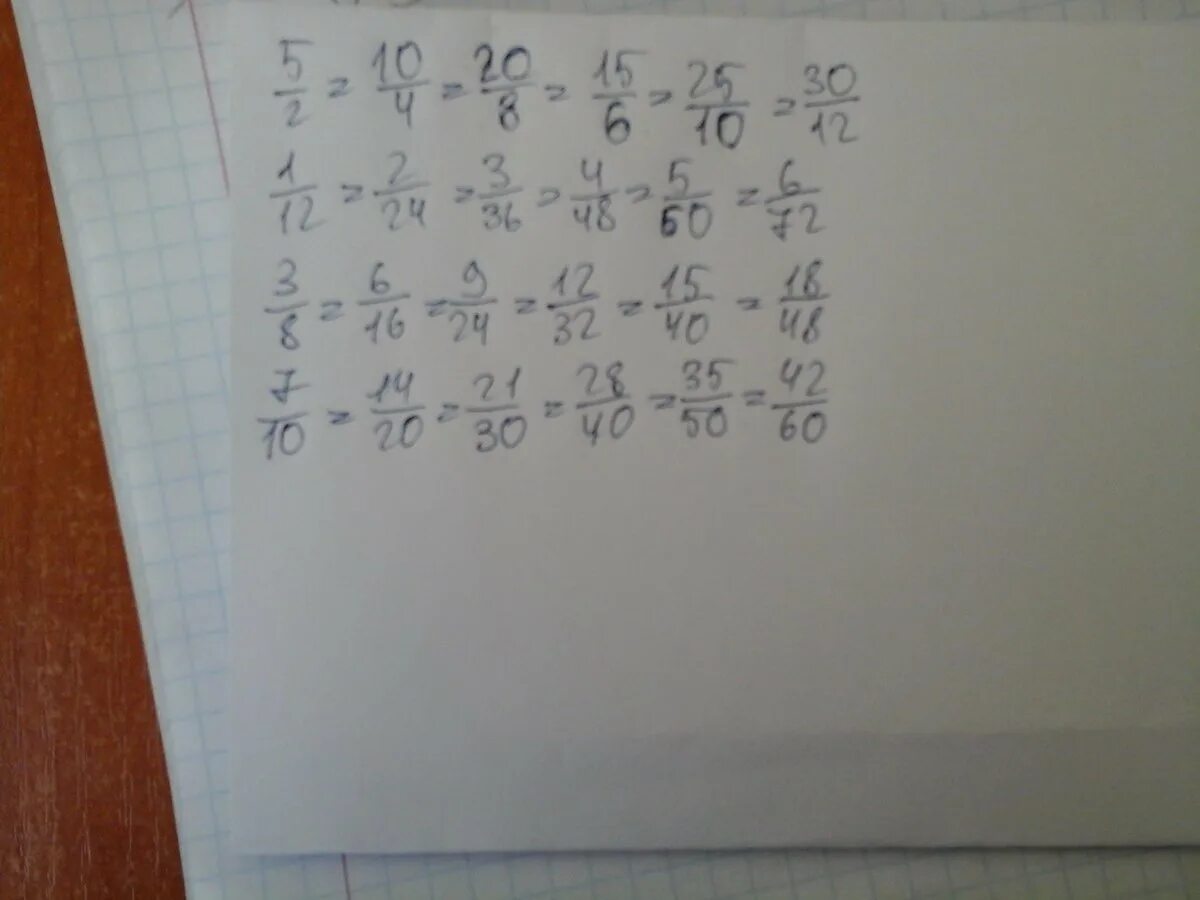 5/2 = 10/4 = 20/8 = 15/6 = 25/10 = 30/12
1/12 = 2/24 = 3/36 = 4/48 = 5/60 = 6/72
3/8 = 6/16 = 9/24 = 12/32 = 15/40 = 18/48
7/10 = 14/20 = 21/30 = 28/40 = 35/50 = 42/60